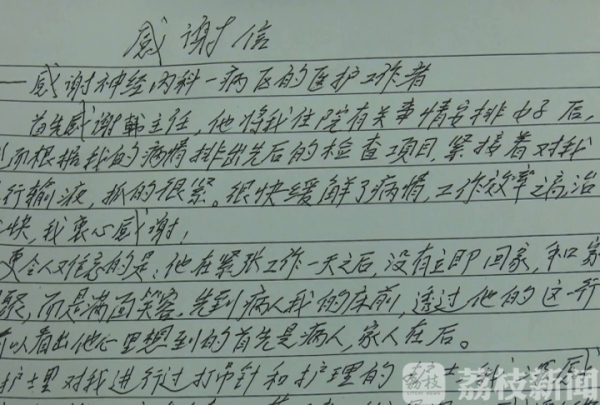 感谢信
—感谢神经内科一病区的医护工作者
首先感谢韩主任,他将我住院有关事情安排好后,
而根据我的病情排出先后的检查项目,紧接着对我
行输液,抓的很紧。很快缓解了病情,工作效率之高治
快,我衷心感谢!
更令人难忘的是,他在紧张工作一天之后,没有立即回家,和家
聚,而是满面笑容,先到病人我的床前,透过他的这一行
可以看出他心里想到的首先是病人,家人在后。
护士里对我进行过打吊针和护理的护士
荔枝
荔枝新闻